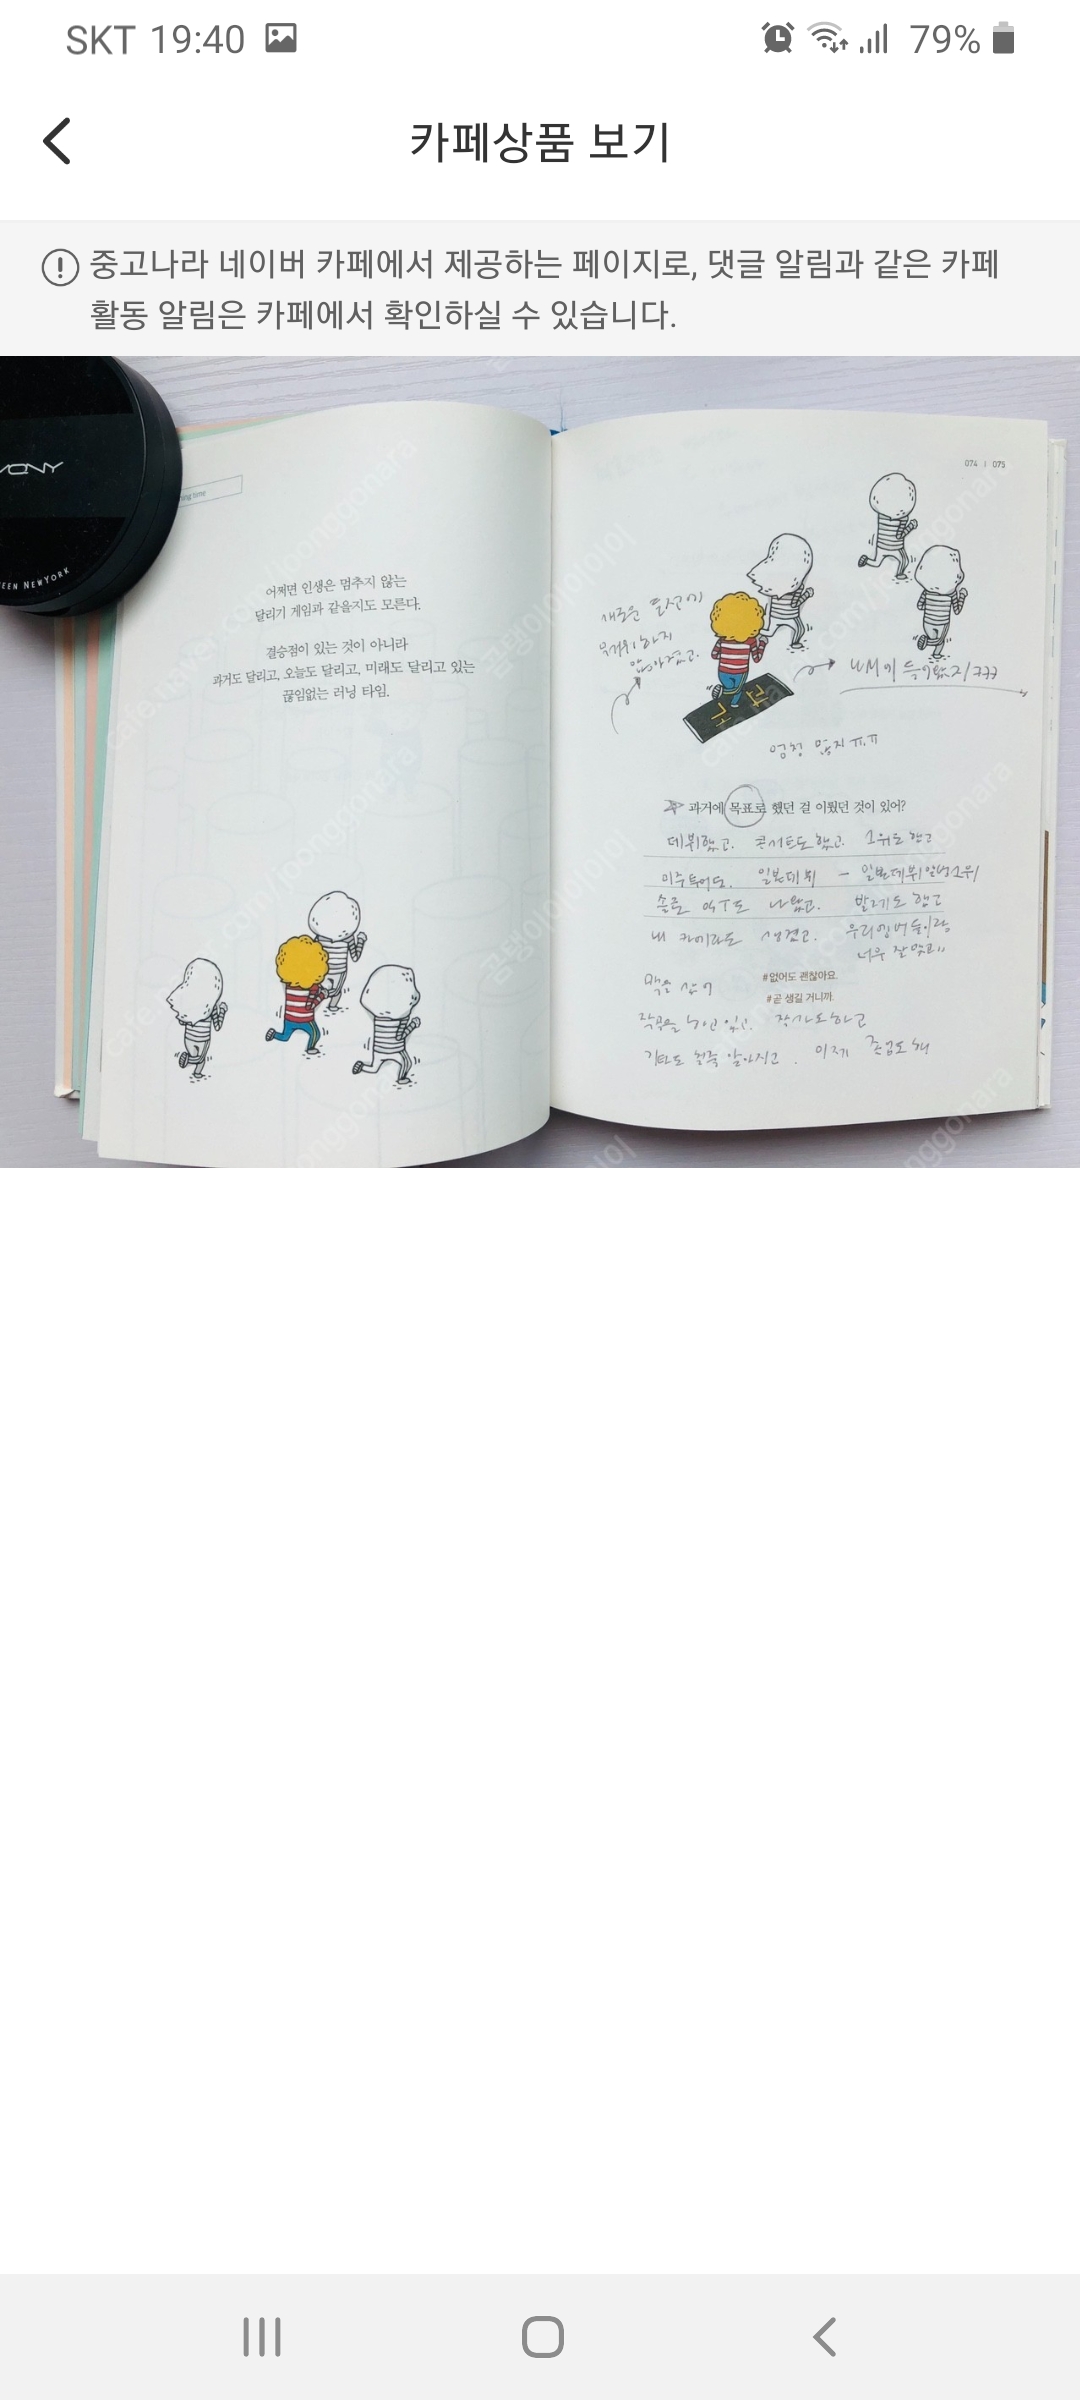 SKT 19:40 79%
카페상품 보기
중고나라 네이버 카페에서 제공하는 페이지로, 댓글 알림과 같은 카페
활동 알림은 카페에서 확인하실 수 있습니다.
EEN NEWYORK
ning time
어쩌면 인생은 멈추지 않는
달리기 게임과 같을지도 모른다.
결승점이 있는 것이 아니라
과거도 달리고, 오늘도 달리고, 미래도 달리고 있는
끊임없는 러닝 타임.
074 | 075
새로운 도전에
무서워하지
않아졌고.
과거
WM에 들어왔지ㅋㅋㅋ
엄청 많지 ㅠ.ㅠ
과거에 목표로 했던 걸 이뤘던 것이 있어?
데뷔했고. 콘서트도 했고. 1위도 했고
미주투어도. 일본데뷔 - 일본데뷔앨범1위
솔로 OST도 나왔고. 발레도 했고
내 카메라도 생겼고. 우리멤버들이랑
너무 잘맞고
#없어도 괜찮아요.
#곧 생길 거니까.
작곡을 하고 있고. 작사도하고
기타도 알아지고. 이제 조금도 해